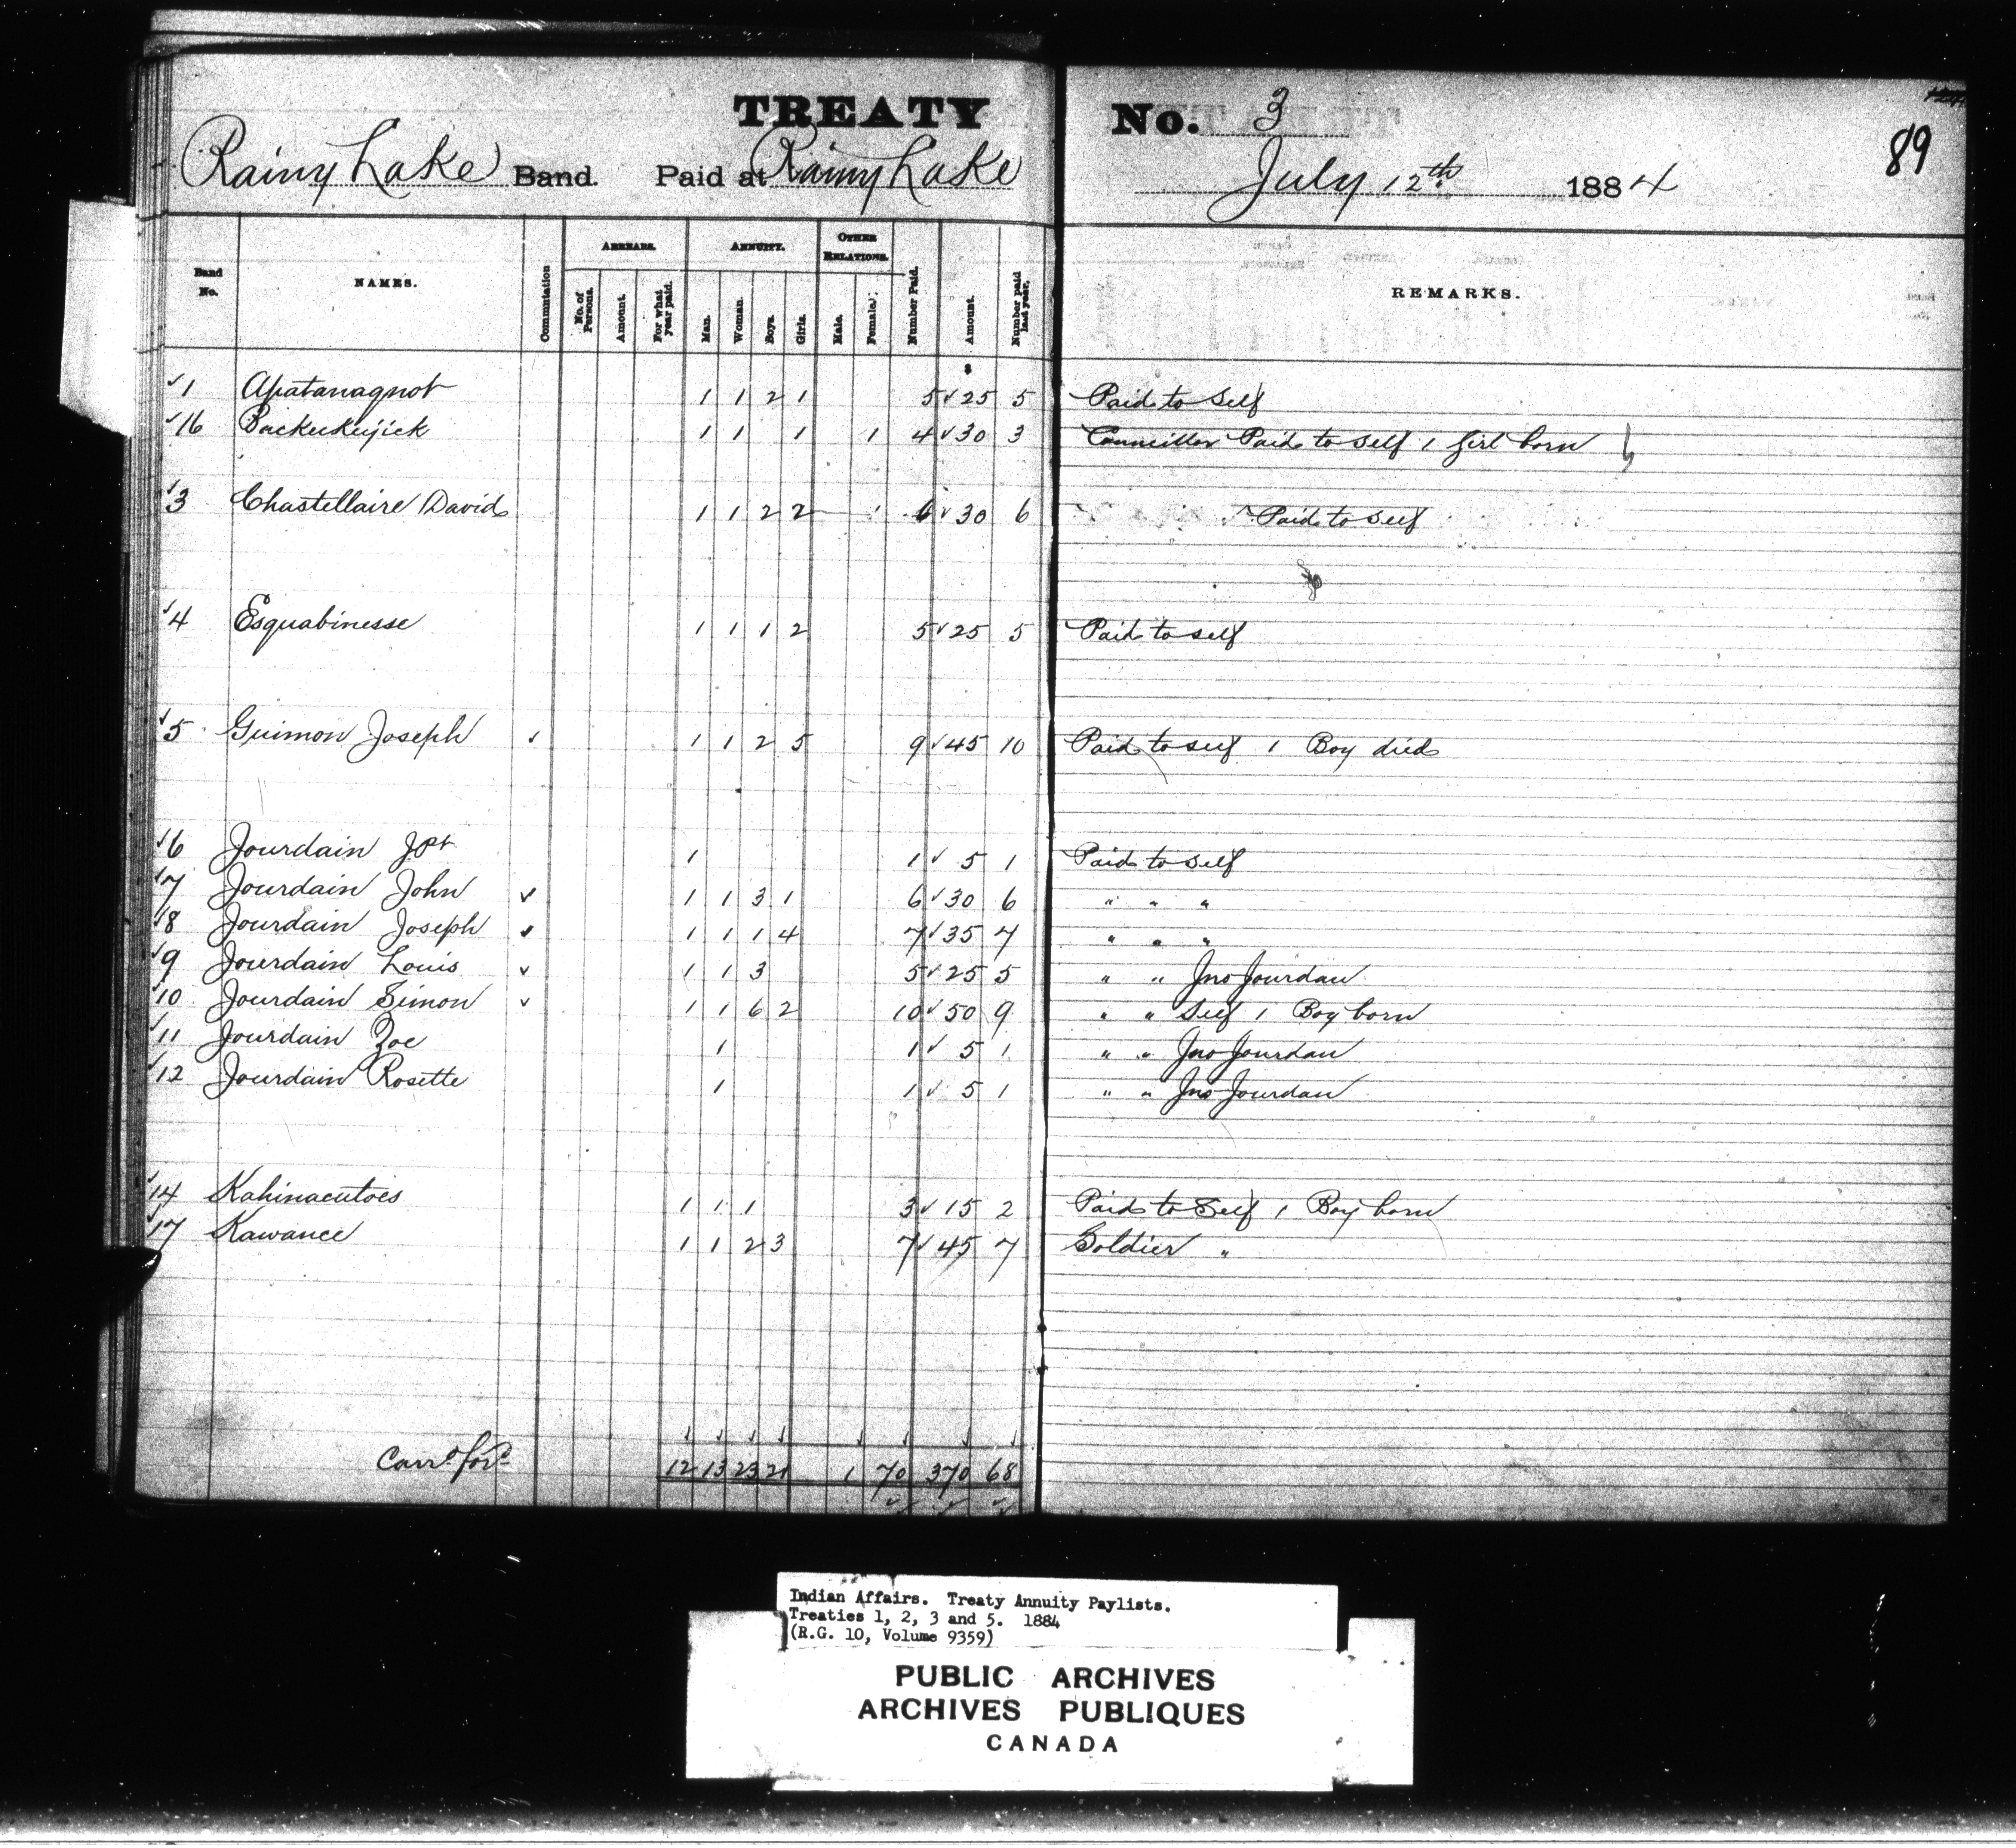 TREATY No. 3
89
Rainy Lake Band. Paid at Rainy Lake July 12th 1884
Band No. NAMES. Commutation ARREARS. No. of Persons. Amount. For what year paid. ANNUITY. Man. Woman. Boys. Girls. OTHER RELATIONS. Male. Female. Number Paid. Amount. Number paid last year. REMARKS.
$
✓1 Apatanaqnot 1 1 2 1 5 ✓ 25 5 Paid to Self
✓16 Backukejick 1 1 1 1 4 ✓ 30 3 Councillor Paid to self 1 girl born
✓3 Chastellaire David 1 1 2 2 6 ✓ 30 6 Paid to self
✓4 Esquabinesse 1 1 1 2 5 ✓ 25 5 Paid to self
✓5 Guimon Joseph ✓ 1 1 2 5 9 ✓ 45 10 Paid to self 1 Boy died
✓6 Jourdain J Pt 1 1 ✓ 5 1 Paid to self
✓7 Jourdain John ✓ 1 1 3 1 6 ✓ 30 6 " " "
✓8 Jourdain Joseph ✓ 1 1 1 4 7 ✓ 35 7 " " "
✓9 Jourdain Louis ✓ 1 1 3 5 ✓ 25 5 " " Jno Jourdan
✓10 Jourdain Simon ✓ 1 1 6 2 10 ✓ 50 9 " " Self 1 Boy born
✓11 Jourdain Zoe 1 1 ✓ 5 1 " " Jno Jourdan
✓12 Jourdain Rosette 1 1 ✓ 5 1 " " Jno Jourdan
✓14 Kahinacutoes 1 1 1 3 ✓ 15 2 Paid to Self 1 Boy born
✓17 Kawance 1 1 2 3 7 ✓ 45 7 Soldier "
Carrd ford 12 13 23 21 1 70 370 68
Indian Affairs. Treaty Annuity Paylists.
Treaties 1, 2, 3 and 5. 1884
(R.G. 10, Volume 9359)
PUBLIC ARCHIVES
ARCHIVES PUBLIQUES
CANADA